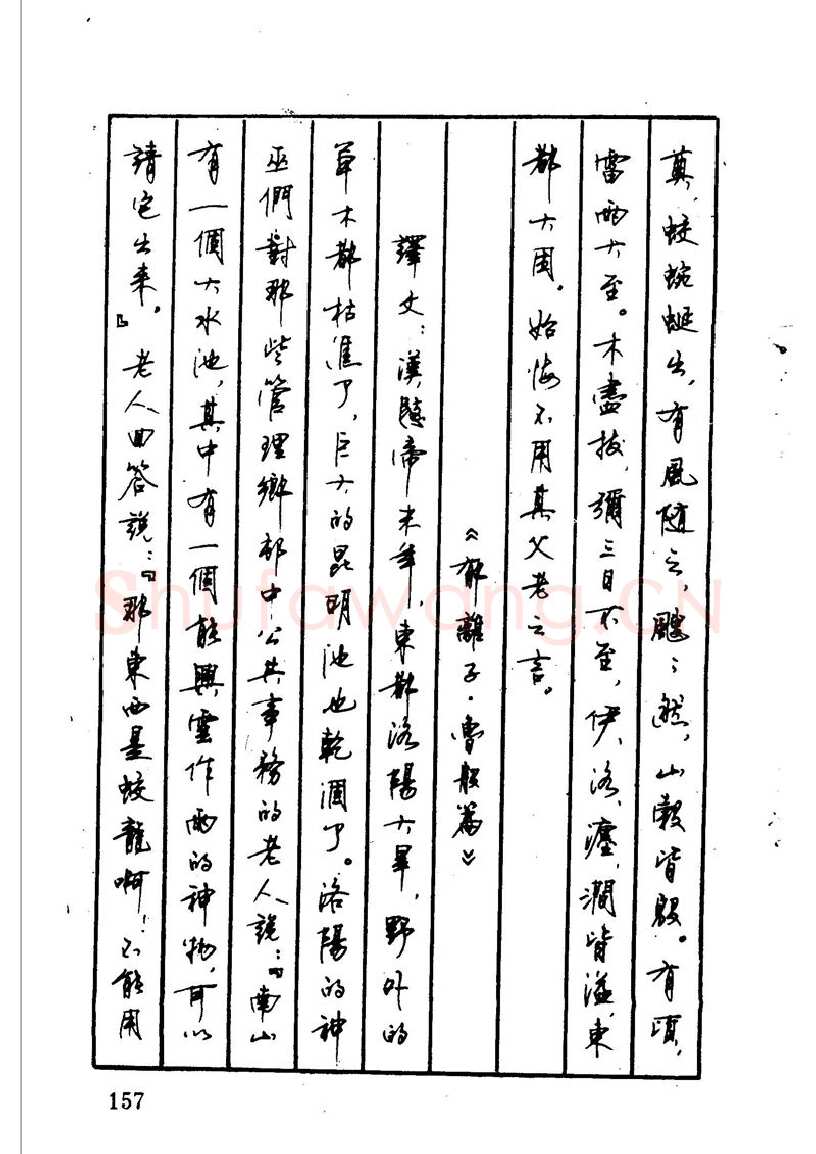 奠，蛟蜿蜒出，有風随之，颼〻然，山穀皆殷。有頃，
雷雨大至。木盡拔，彌三日不至，伊、洛、瀍、澗皆溢，東
都大困。始悔不用其父老之言。
《郁離子·魯般篇》
譯文：漢愍帝末年，東都洛陽大旱，野外的
草木都枯焦了，巨大的昆明池也乾涸了。洛陽的神
巫們對那些管理鄉都中公共事務的老人說：『南山
有一個大水池，其中有一個能興雲作雨的神物，可以
請它出來。』老人回答說：『那東西是蛟龍啊！不能用
157
Shufawang.CN